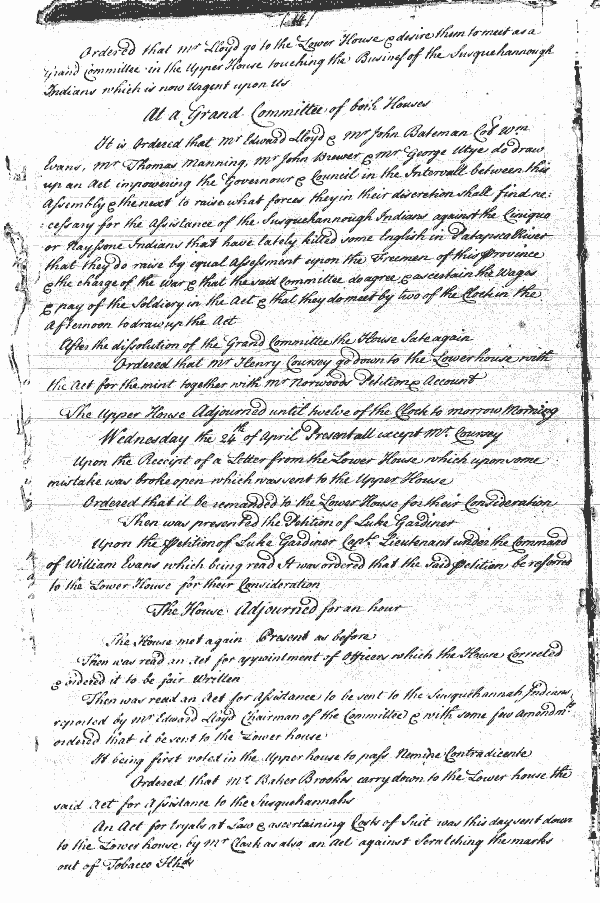 (14)
Ordered that mr Lloyd go to the Lower House & desire them to meet as a
Grand Committee in the Upper House touching the Business of the Susquehannough
Indians which is now Urgent upon Us
At a Grand Committee of both Houses
It is Ordered that Mr Edward Lloyd & Mr John Bateman Coll Wm
Evans, Mr Thomas Manning, Mr John Brewer & Mr George Utye do draw
up an Act impowering the Governour & Council in the Intervall between this
Assembly & the next to raise what forces they in their discretion shall find ne:
:cessary for the Assistance of the Susquehannough Indians against the Ciniguo
or Naijssone Indians that have lately killed some English in Patapsco River
that they do raise by equal Assessment upon the Freemen of this Province
& the charge of the War & that the said Committee do agree & ascertain the Wages
& pay of the Soldiery in the Act & that they do meet by two of the Clock in the
Afternoon to draw up the Act
After the dissolution of the Grand Committee the House Sate again
Ordered that mr Henry Coursey go down to the Lower house with
the Act for the mint together with mr Norwoods Petition & Account
The Upper House Adjourned until twelve of the Clock to morrow Morning
Wednesday the 24th of April Present all except Mr. Coursey
Upon the Receipt of a Letter from the Lower House which upon some
mistake was broke open which was sent to the Upper House
Ordered that it be remanded to the Lower House for their Consideration
Then was presented the Petition of Luke Gardiner
Upon the Petition of Luke Gardiner Capt. Lieutenant under the Command
of William Evans which being read It was ordered that the said petition be referred
to the Lower House for their Consideration
The House Adjourned for an hour
The House met again Present as before
Then was read an Act for appointment of Officers which the House Corrected
& ordered it to be fair Written
Then was read an Act for Assistance to be sent to the Susquehannah Indians
reported by mr Edward Lloyd Chairman of the Committee & with some few Amendmts
ordered that it be sent to the Lower house
It being first voted in the Upper house to pass Nemine Contradicente
Ordered that Mr. Baker Brookes carry down to the Lower house the
said Act for Assistance to the Susquehannahs
An Act for tryals at Law & ascertaining Costs of Suit was this day sent down
to the Lower house by mr Clark as also an Act against Scratching the marks
out of Tobacco Hhds